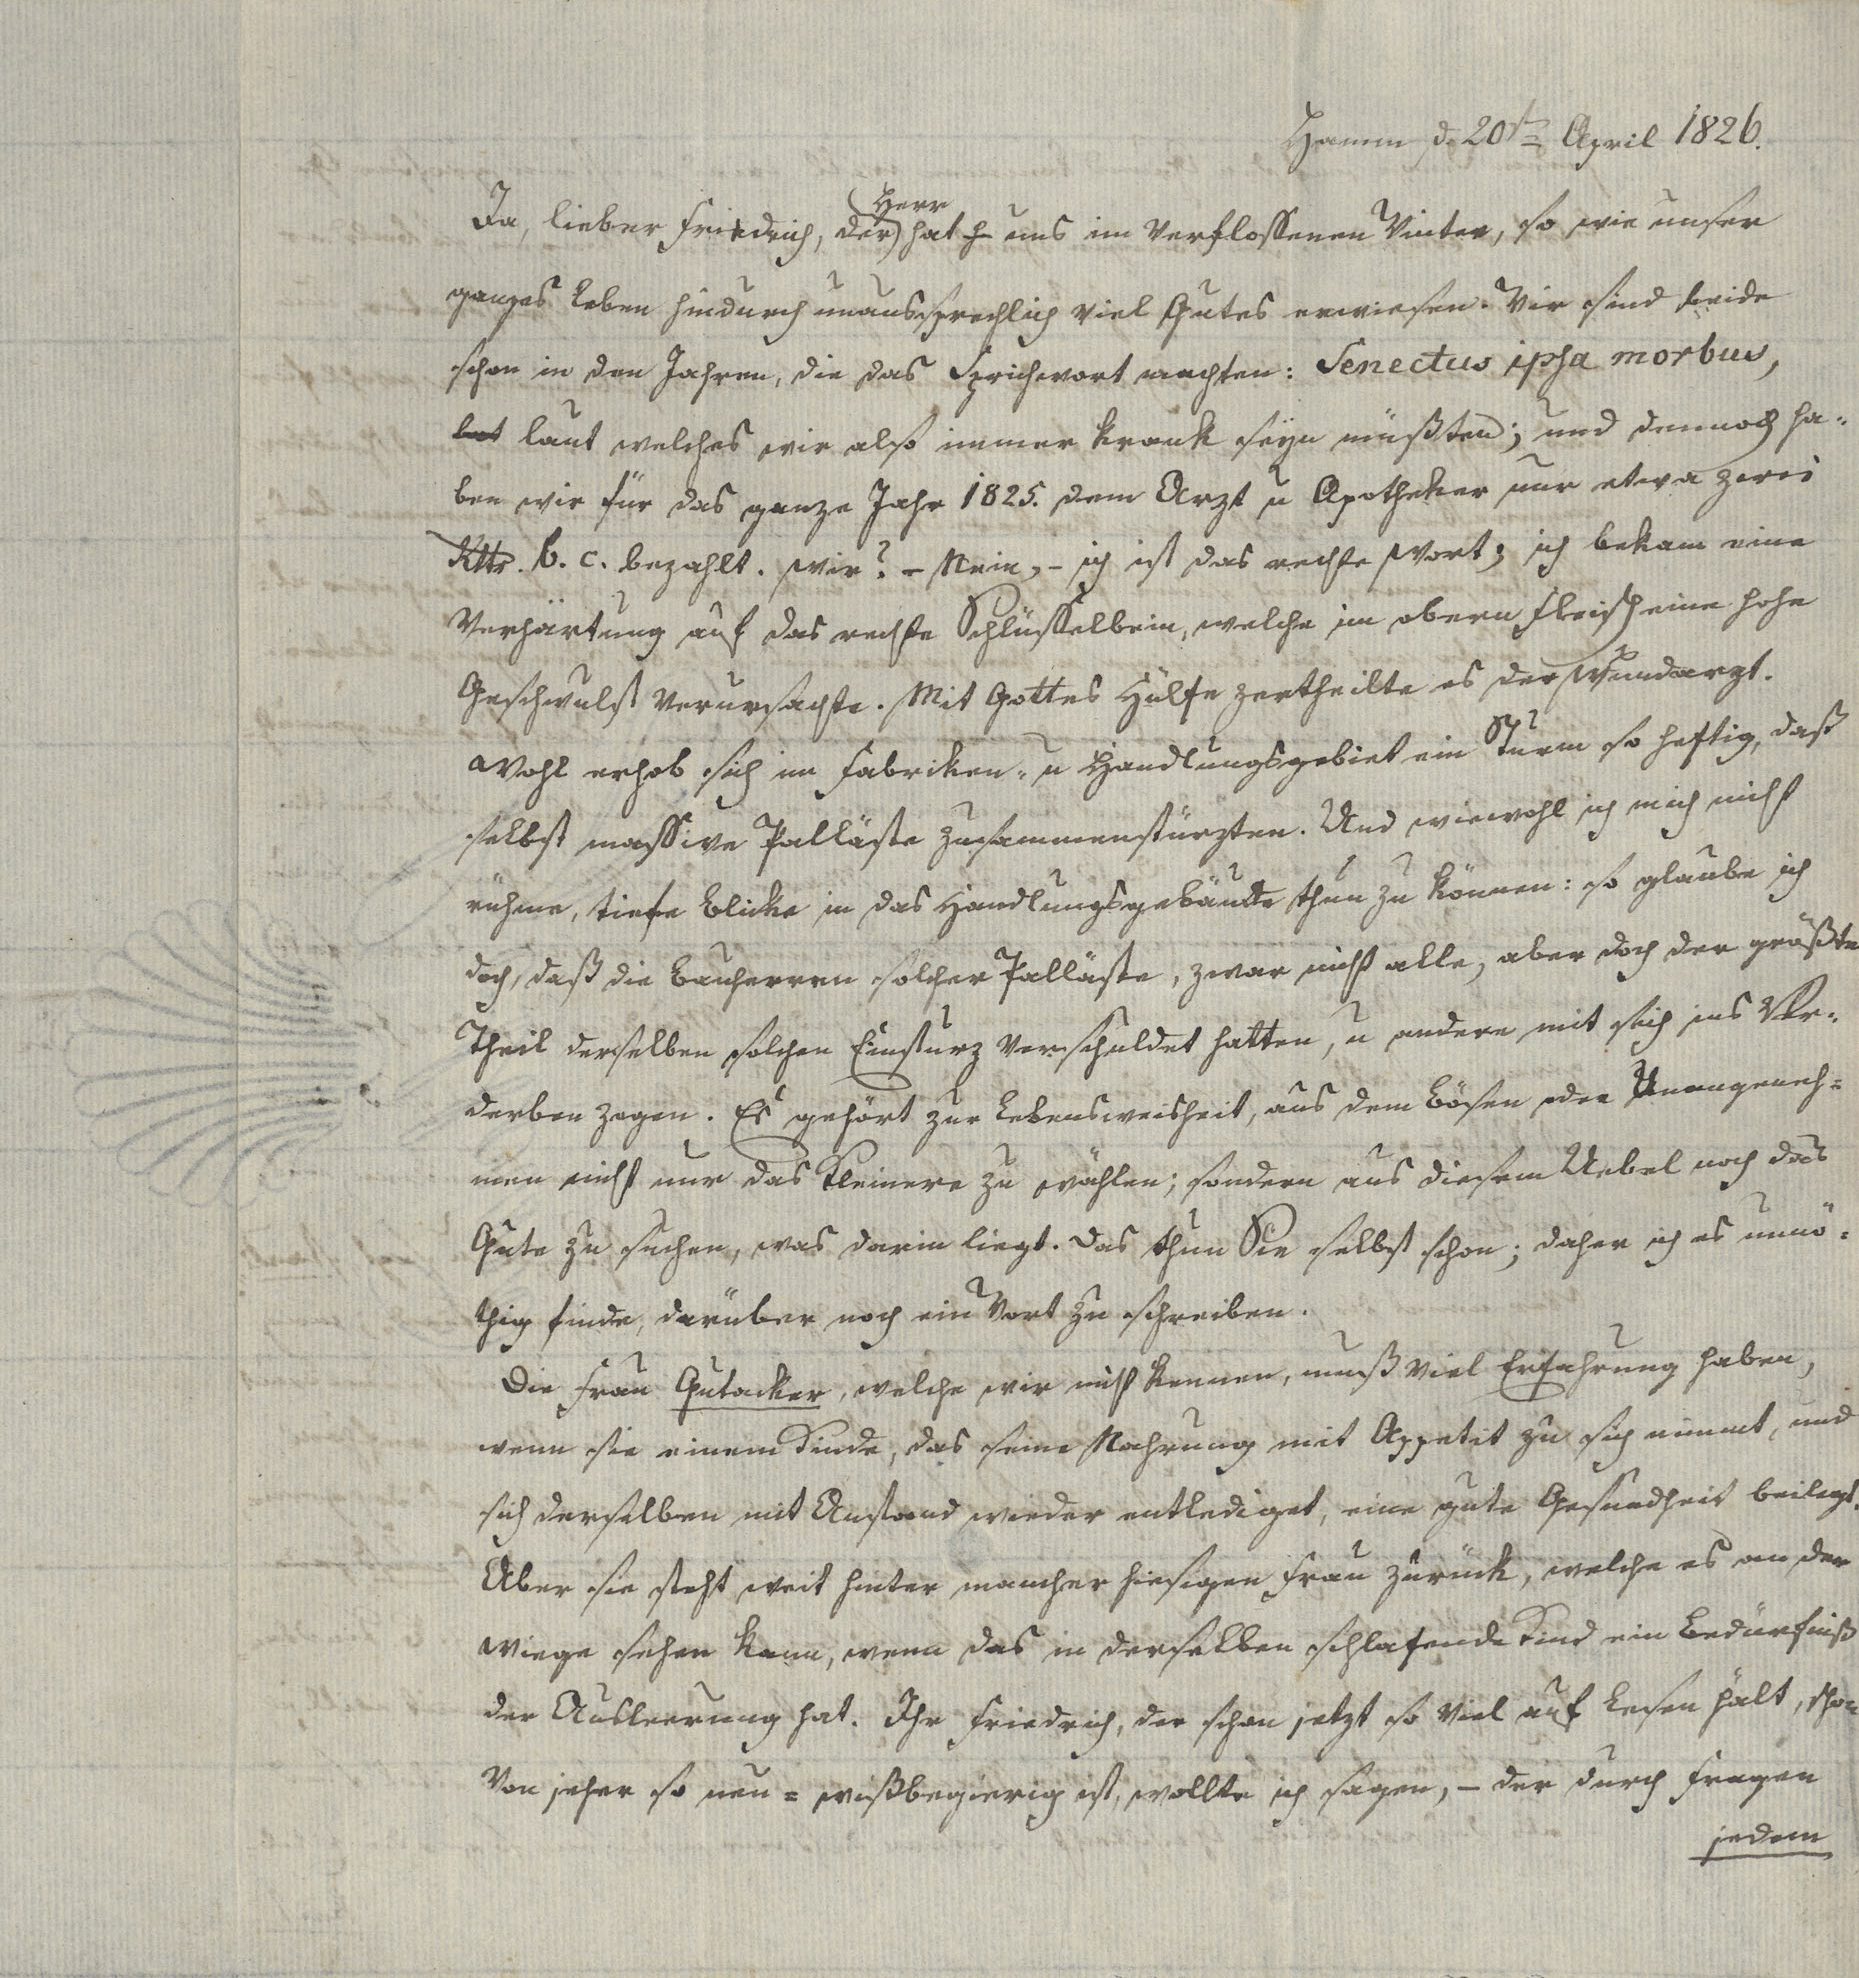 Hamm d. 20ten April 1826.
Herr
Ja, lieber Friedrich, der hat uns im verflossenen Winter, so wie unser
ganzes Leben hindurch unaussprechlich viel Gutes erwiesen. Wir sind beide
schon in den Jahren, die das Sprichwort machten: Senectus ipsa morbus,
laut welches wir also immer krank seyn müßten; und dennoch ha-
ben wir für das ganze Jahr 1825. dem Arzt u Apotheker nur etwa zwei
Rtlr. b. c. bezahlt. Wir? – Nein, – ich ist das rechte Wort; ich bekam eine
Verhärtung auf das rechte Schlüsselbein, welche im obern Fleisch eine hohe
Geschwulst verursachte. Mit Gottes Hülfe zertheilte es der Wundarzt.
Wohl erhob sich im Fabriken- u Handlungsgebiet ein Sturm so heftig, daß
selbst massive Palläste zusammenstürzten. Und wiewohl ich mich nicht
rühme, tiefe Blicke in das Handlungsgebäude thun zu können: so glaube ich
doch, daß die Bauherren solcher Palläste, zwar nicht alle, aber doch der größte
Theil derselben solchen Einsturz verschuldet hatten, u andere mit sich ins Ver-
derben zogen. Es gehört zur Lebensweisheit, aus dem Bösen oder Unangeneh-
men nicht nur das Kleinere zu wählen; sondern aus diesem Uebel noch das
Gute zu suchen, was darin liegt. Das thun Sie selbst schon; daher ich es unnö-
thig finde, darüber noch ein Wort zu schreiben.
Die Frau Gutacker, welche wir nicht kennen, muß viel Erfahrung haben,
wenn sie einem Kinde, das seine Nahrung mit Appetit zu sich nimmt, und
sich derselben mit Anstand wieder entlediget, eine gute Gesundheit beilegt.
Aber sie steht weit hinter mancher hiesigen Frau zurück, welche es an der
Wiege sehen kann, wenn das in derselben schlafende Kind ein Bedürfniß
der Ausleerung hat. Ihr Friedrich, der schon jetzt so viel auf Lesen hält, schon
von jeher so neu- wißbegierig ist, wollte ich sagen, – der durch Fragen
jedem